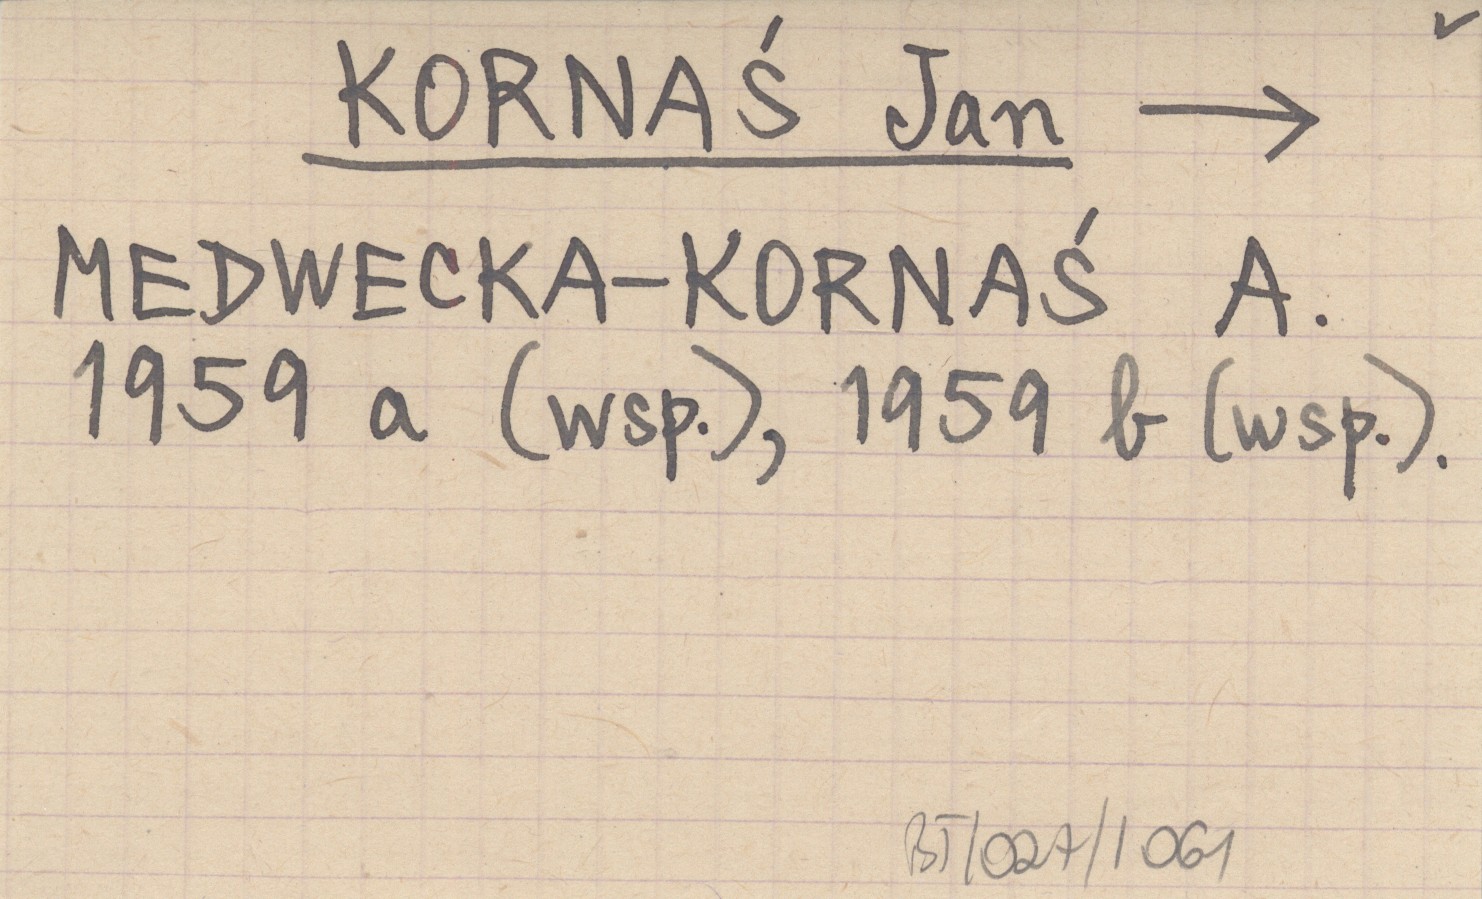 KORNAŚ Jan →
MEDWECKA-KORNAŚ A.
1959 a (wsp.), 1959 b (wsp.).
BT/027/1061